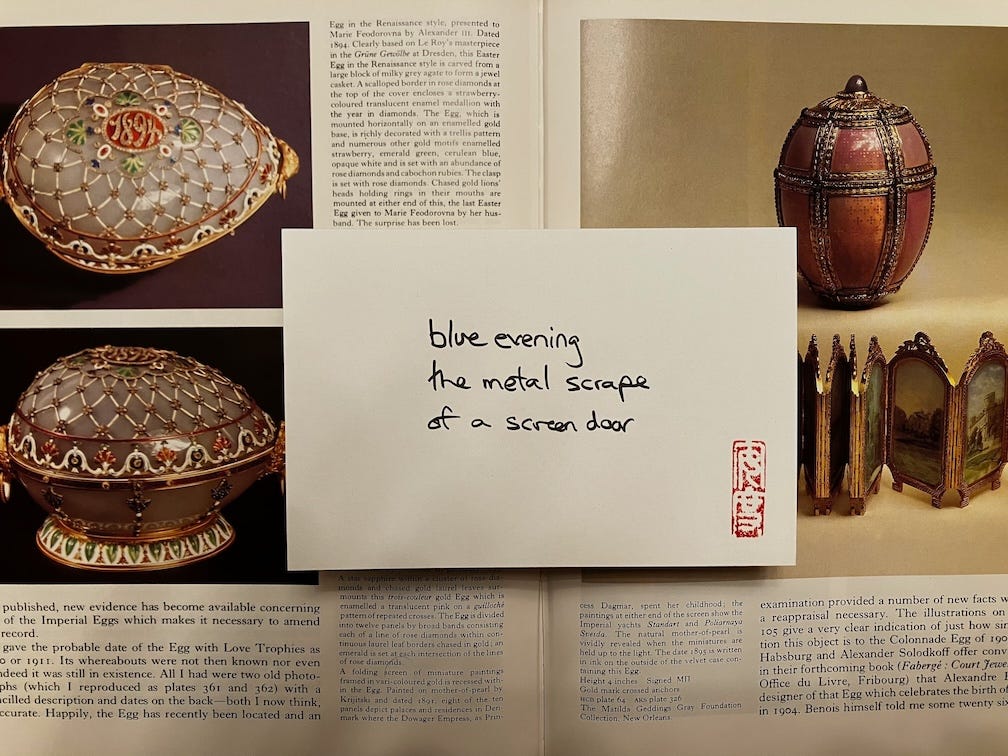 Egg in the Renaissance style, presented to
Marie Feodorovna by Alexander III. Dated
1894. Clearly based on Le Roy's masterpiece
in the Grüne Gewölbe at Dresden, this Easter
Egg in the Renaissance style is carved from a
large block of milky grey agate to form a jewel
casket. A scalloped border in rose diamonds at
the top of the cover encloses a strawberry-
coloured translucent enamel medallion with
the year in diamonds. The Egg, which is
mounted horizontally on an enamelled gold
base, is richly decorated with a trellis pattern
and numerous other gold motifs enamelled
strawberry, emerald green, cerulean blue,
opaque white and is set with an abundance of
rose diamonds and cabochon rubies. The clasp
is set with rose diamonds. Chased gold lions'
heads holding rings in their mouths are
mounted at either end of this, the last Easter
Egg given to Marie Feodorovna by her hus-
band. The surprise has been lost.
1894
blue evening
the metal scrape
of a screen door
A star sapphire within a cluster of rose dia-
monds and chased gold laurel leaves sur-
mounts this trois-couleur gold Egg which is
enamelled a translucent pink on a guilloché
pattern of repeated crosses. The Egg is divided
into twelve panels by broad bands consisting
each of a line of rose diamonds within con-
tinuous laurel leaf borders chased in gold; an
emerald is set at each intersection of the lines
of rose diamonds.
A folding screen of miniature paintings
framed in vari-coloured gold is recessed with-
in the Egg. Painted on mother-of-pearl by
Krijitski and dated 1891: eight of the ten
panels depict palaces and residences in Den-
mark where the Dowager Empress, as Prin-
published, new evidence has become available concerning
of the Imperial Eggs which makes it necessary to amend
record.
gave the probable date of the Egg with Love Trophies as
o or 1911. Its whereabouts were not then known nor even
ndeed it was still in existence. All I had were two old photo-
phs (which I reproduced as plates 361 and 362) with a
ncilled description and dates on the back—both I now think,
ccurate. Happily, the Egg has recently been located and an
cess Dagmar, spent her childhood; the
paintings at either end of the screen show the
Imperial yachts Standart and Poliarnaya
Svezda. The natural mother-of-pearl is
vividly revealed when the miniatures are
held up to the light. The date 1895 is written
in ink on the outside of the velvet case con-
taining this Egg.
Height 4 inches Signed МП
Gold mark crossed anchors
plate 64 plate 326
The Matilda Geddings Gray Foundation
Collection, New Orleans.
examination provided a number of new facts w
a reappraisal necessary. The illustrations on
105 give a very clear indication of just how sim
tion this object is to the Colonnade Egg of 190
Habsburg and Alexander Solodkoff offer conv
in their forthcoming book (Fabergé: Court Jewe
Office du Livre, Fribourg) that Alexandre
designer of that Egg which celebrates the birth of
in 1904. Benois himself told me some twenty six